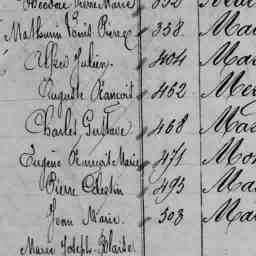 Théodore Pierre Marie 332
Mathurin Louis Pierre 338. Ma
Alfred Julien. 404 Ma
Auguste François 462 Me
Charles Gustave 468 Ma
Eugène François Marie 471 Mo
Pierre Célestin 493 Ma
Jean Marie. 503 Ma
Marie Joseph